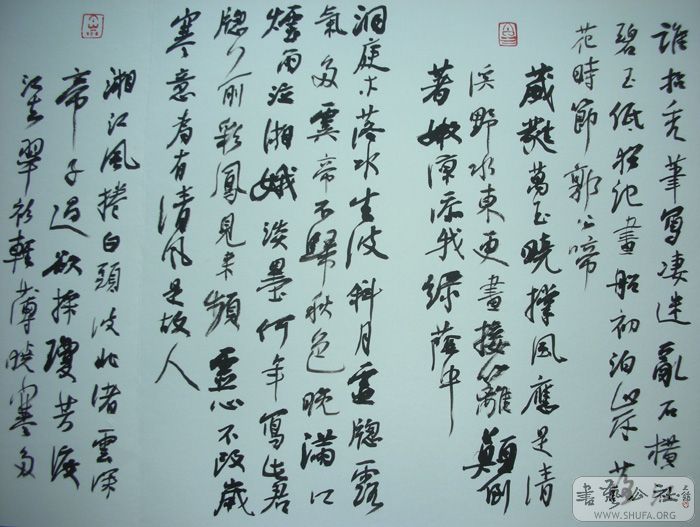 誰拈禿筆寫淒迷亂石橫江
碧玉低猶記畫船初泊岸
花時節郭公啼
葳蕤萬玉曉撐風應是清
溪野水東更畫接籬顛倒
著嫩涼添我綠蔭中
洞庭木落水生波斜月虛牕露
氣多虞帝不歸秋色晚滿江
煙雨泣湘娥淡墨何年寫此君
牕前彩鳳見來頻靈心不改歲
寒意有清風是故人
湘江風捲白頭波北渚雲深
帝子過欲採瓊芳渡
江去翠衫輕薄曉寒多
書藝公社
WWW.SHUFA.ORG